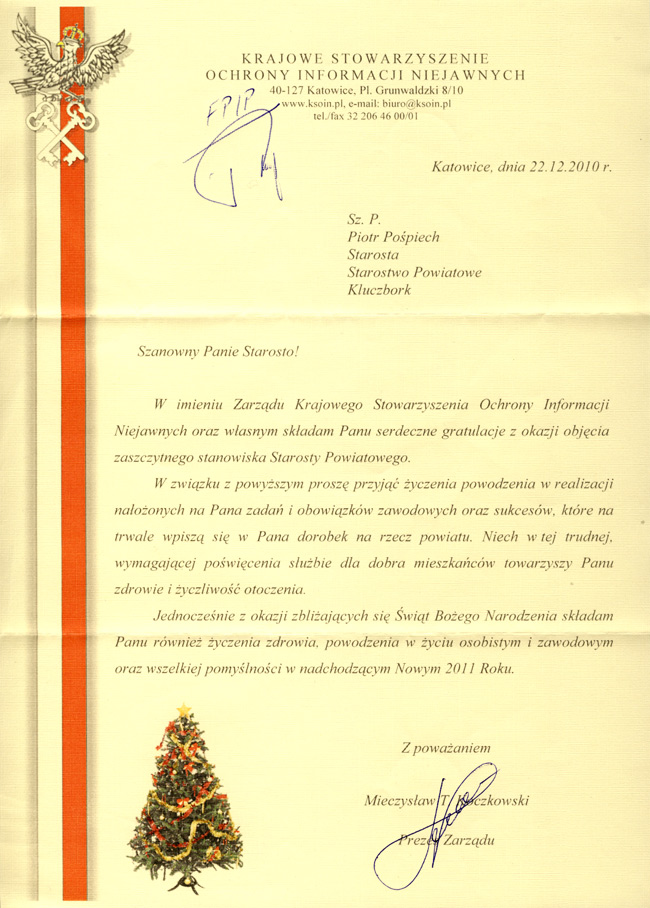 KRAJOWE STOWARZYSZENIE
OCHRONY INFORMACJI NIEJAWNYCH
40-127 Katowice, Pl. Grunwaldzki 8/10
www.ksoin.pl, e-mail: biuro@ksoin.pl
tel./fax 32 206 46 00/01
Katowice, dnia 22.12.2010 r.
Sz. P.
Piotr Pośpiech
Starosta
Starostwo Powiatowe
Kluczbork
Szanowny Panie Starosto!
W imieniu Zarządu Krajowego Stowarzyszenia Ochrony Informacji
Niejawnych oraz własnym składam Panu serdeczne gratulacje z okazji objęcia
zaszczytnego stanowiska Starosty Powiatowego.
W związku z powyższym proszę przyjąć życzenia powodzenia w realizacji
nałożonych na Pana zadań i obowiązków zawodowych oraz sukcesów, które na
trwale wpiszą się w Pana dorobek na rzecz powiatu. Niech w tej trudnej,
wymagającej poświęcenia służbie dla dobra mieszkańców towarzyszy Panu
zdrowie i życzliwość otoczenia.
Jednocześnie z okazji zbliżających się Świąt Bożego Narodzenia składam
Panu również życzenia zdrowia, powodzenia w życiu osobistym i zawodowym
oraz wszelkiej pomyślności w nadchodzącym Nowym 2011 Roku.
Z poważaniem
Mieczysław T. Koczkowski
Prezes Zarządu